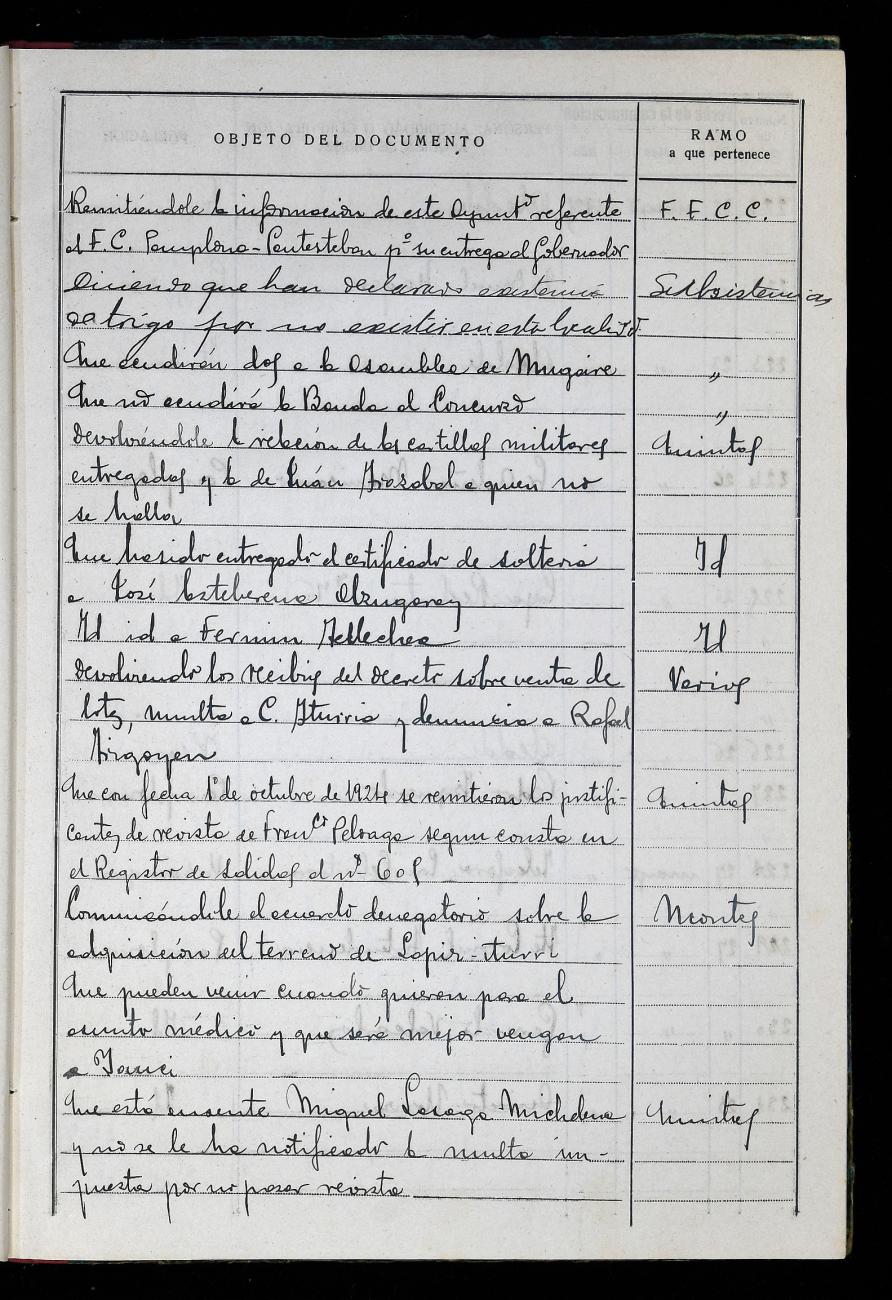 OBJETO DEL DOCUMENTO
RAMO
a que pertenece
Remitiéndole la información de este Ayuntº referente F. F. C. C.
al F.C. Pamplona-Santesteban pª su entrega al Gobernador
Diciendo que han declarado existencia Subsistencias
de trigo por no existir en esta localidad
Que acudirán dos a la Asamblea de Mugaire "
Que no acudirá la Banda al Concurso "
Devolviéndole la relación de las cartillas militares Quintas
entregadas y la de Juán Irazabal a quien no
se halla
Que ha sido entregado el certificado de solteria Id
a José Esteberena Alzugaray
Id id a Fermin Tellechea Id
Devolviendo los recibís del decreto sobre venta de Varios
lotes, multa a C. Iturria y denuncia a Rafael
Irigoyen
Que con fecha 1º de octubre de 1924 se remitieron los justifi- Quintas
cantes de revista de Francº Peloaga segun consta en
el Registro de salidas al nº 608
Comunicándole el acuerdo denegatorio sobre la Montes
adquisición del terreno de Lapiz-iturri
Que pueden venir cuando quieran para el
asunto médico y que será mejor vengan
a Yanci
Que está ausente Miguel Lasaga Michelena Quintas
y no se le ha notificado la multa im-
puesta por no pasar revista